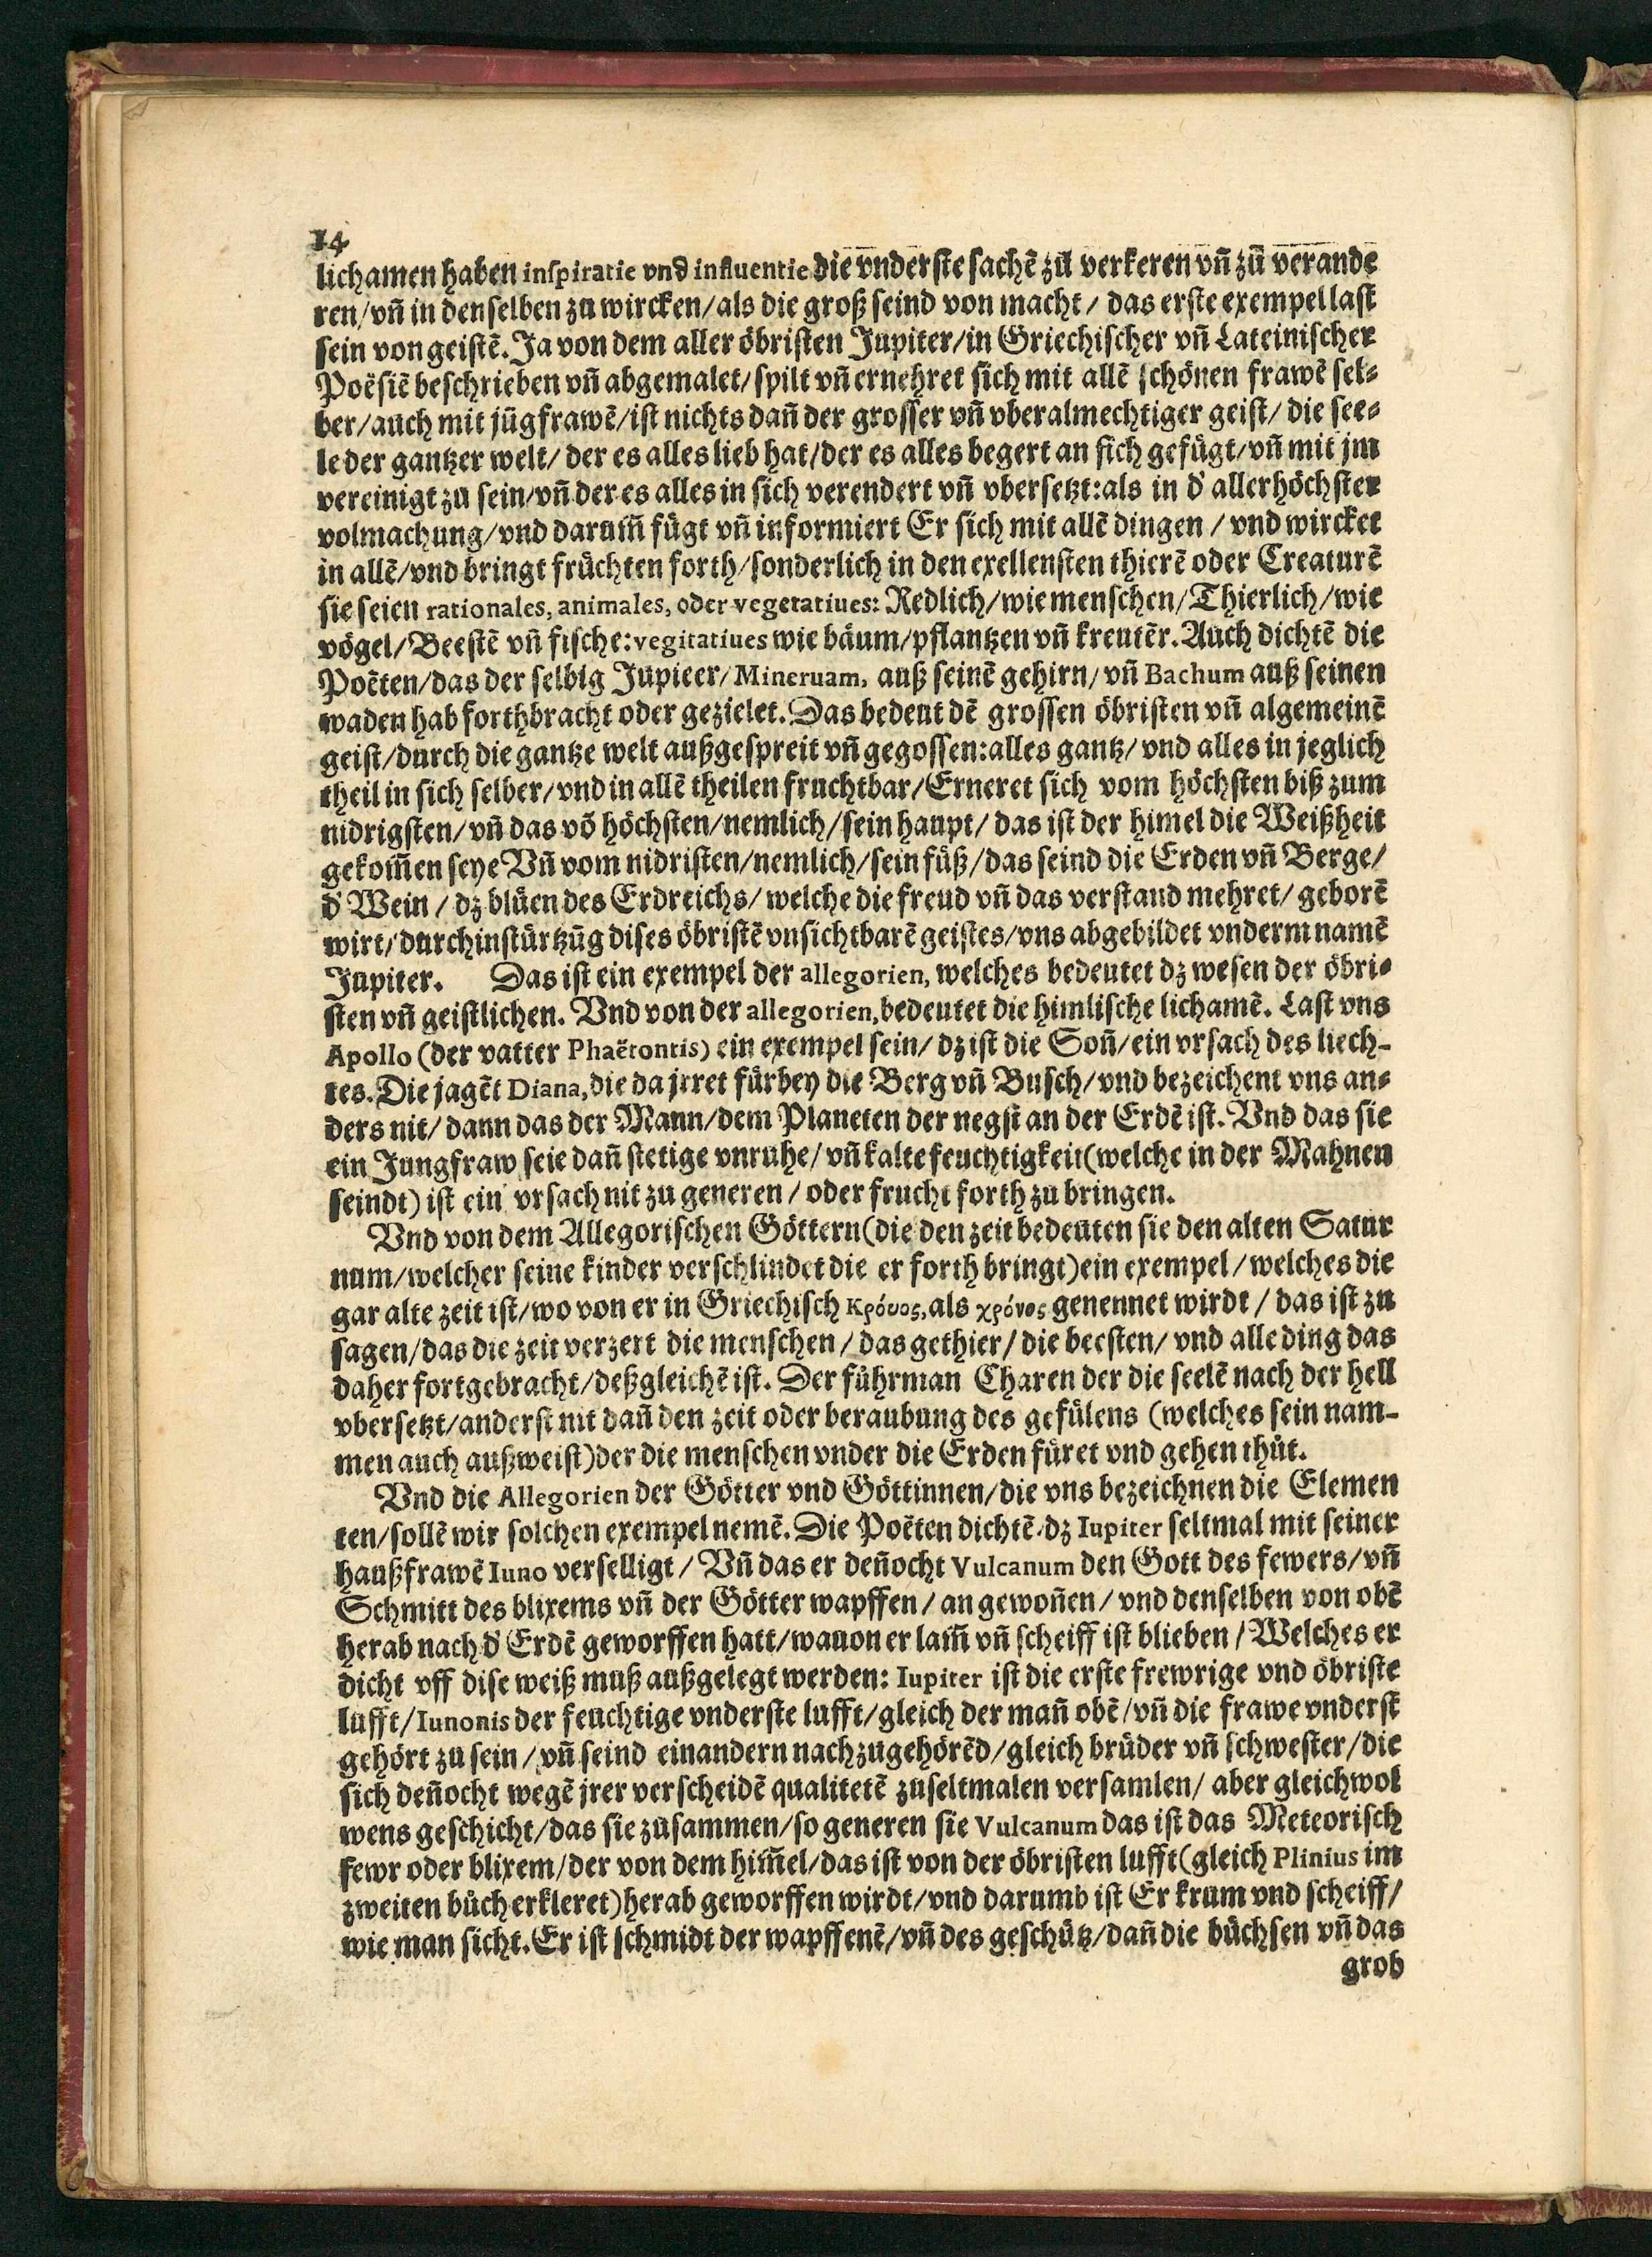 14
lichamen haben inspiratie vnd influentie die vnderste sachē zů verkeren vñ zů verande
ren/vñ in denselben zu wircken/als die groß seind von macht/ das erste exempel last
sein von geistē. Ja von dem aller öbristen Jupiter/in Griechischer vñ Lateinischer
Poësiē beschrieben vñ abgemalet/spilt vñ ernehret sich mit allē schönen frawē sel-
ber/auch mit jūgfrawē/ist nichts dañ der grosser vñ vberalmechtiger geist/ die see-
le der gantzer welt/ der es alles lieb hat/der es alles begert an sich gefügt/vñ mit jm
vereinigt zu sein/vñ der es alles in sich verendert vñ vbersetzt:als in d' allerhöchster
volmachung/vnd darum̄ fügt vñ informiert Er sich mit allē dingen / vnd wircket
in allē/vnd bringt früchten forth/sonderlich in den exellensten thierē oder Creaturē
sie seien rationales, animales, oder vegetatiues: Redlich/wie menschen/Thierlich/wie
vögel/Beestē vñ fische:vegitatiues wie bäum/pflantzen vñ kreutēr. Auch dichtē die
Poëten/das der selbig Jupieer/Mineruam, auß seinē gehirn/vñ Bachum auß seinen
waden hab forthbracht oder gezielet. Das bedeut dē grossen öbristen vñ algemeinē
geist/durch die gantze welt außgespreit vñ gegossen:alles gantz/ vnd alles in jeglich
theil in sich selber/vnd in allē theilen fruchtbar/Erneret sich vom höchsten biß zum
nidrigsten/vñ das vō höchsten/nemlich/sein haupt/ das ist der himel die Weißheit
gekom̄en seye Vñ vom nidristen/nemlich/sein füß/das seind die Erden vñ Berge/
d' Wein / dz blüen des Erdreichs/welche die freud vñ das verstand mehret/ geborē
wirt/durch instürtzūg dises öbristē vnsichtbarē geistes/vns abgebildet vnderm namē
Jupiter. Das ist ein exempel der allegorien, welches bedeutet dz wesen der öbri-
sten vñ geistlichen. Vnd von der allegorien,bedeutet die himlische lichamē. Last vns
Apollo (der vatter Phaëtontis) ein exempel sein/ dz ist die Soñ/ein vrsach des liech-
tes. Die jagēt Diana,die da jrret fürbey die Berg vñ Busch/vnd bezeichent vns an-
ders nit/dann das der Mann/dem Planeten der negst an der Erdē ist. Vnd das sie
ein Jungfraw seie dañ stetige vnruhe/vñ kalte feuchtigkeit(welche in der Mahnen
seindt) ist ein vrsach nit zu generen / oder frucht forth zu bringen.
Vnd von dem Allegorischen Göttern(die den zeit bedeuten sie den alten Satur
num/welcher seine kinder verschlindet die er forth bringt)ein exempel/welches die
gar alte zeit ist/wo von er in Griechisch Κρόνος,als χρόνος genennet wirdt / das ist zu
sagen/das die zeit verzert die menschen / das gethier/ die beesten/ vnd alle ding das
daher fortgebracht/deßgleichē ist. Der führman Charen der die seelē nach der hell
vbersetzt/anderst nit dañ den zeit oder beraubung des gefülens (welches sein nam-
men auch außweist)der die menschen vnder die Erden füret vnd gehen thůt.
Vnd die Allegorien der Götter vnd Göttinnen/die vns bezeichnen die Elemen
ten/sollē wir solchen exempel nemē. Die Poëten dichtē dz Iupiter seltmal mit seiner
haußfrawē Iuno verselligt / Vñ das er deñocht Vulcanum den Gott des fewers/vñ
Schmitt des blixems vñ der Götter wapffen / an gewoñen / vnd denselben von obē
herab nach d' Erdē geworffen hatt/wauon er lam̄ vñ scheiff ist blieben / Welches er
dicht vff dise weiß muß außgelegt werden: Iupiter ist die erste frewrige vnd öbriste
lufft/Iunonis der feuchtige vnderste lufft/gleich der mañ obē/vñ die frawe vnderst
gehört zu sein/vñ seind einandern nachzugehörēd/gleich brüder vñ schwester/die
sich deñocht wegē jrer verscheidē qualitetē zuseltmalen versamlen/ aber gleichwol
wens geschicht/das sie zusammen/so generen sie Vulcanum das ist das Meteorisch
fewr oder blixem/der von dem him̄el/das ist von der öbristen lufft(gleich Plinius im
zweiten bůch erkleret)herab geworffen wirdt/vnd darumb ist Er krum vnd scheiff/
wie man sicht. Er ist schmidt der wapffenē/vñ des geschütz/dañ die büchsen vñ das
grob